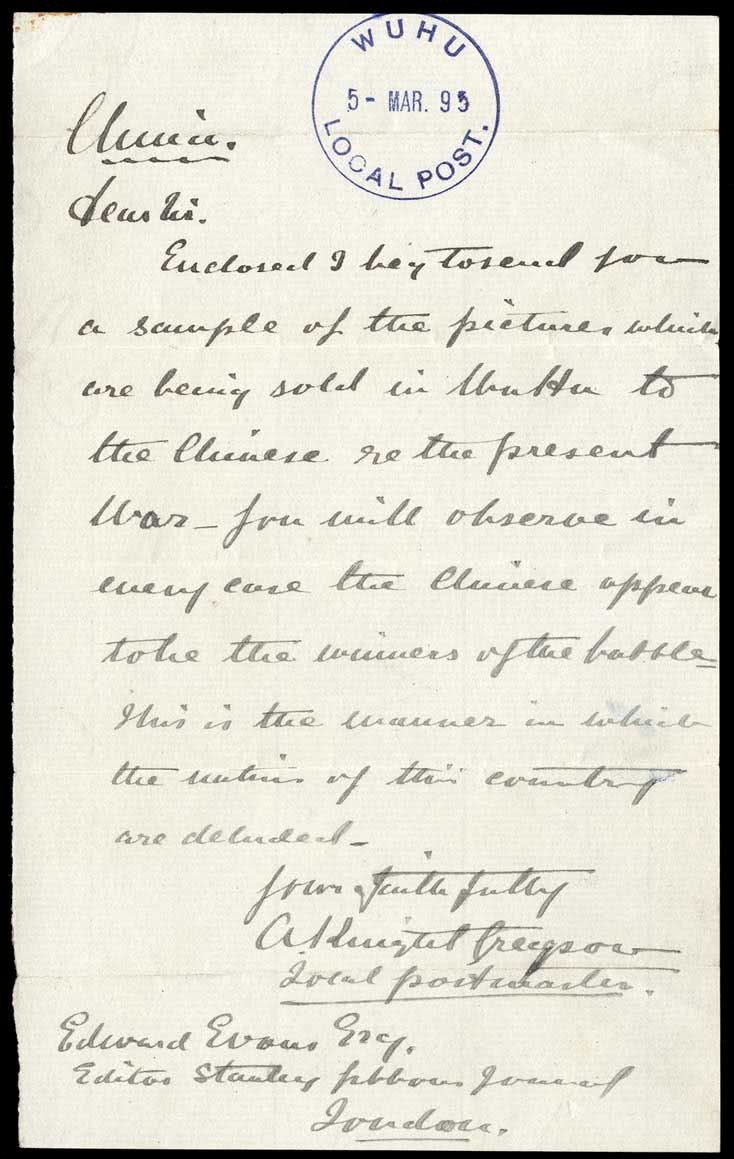 WUHU
5- MAR. 95
LOCAL POST.
China.
Dear Sir.
Enclosed I beg to send you
a sample of the pictures which
are being sold in WuHu to
the Chinese re the present
War - You will observe in
every case the Chinese appear
to be the winners of the battle -
This is the manner in which
the natives of this country
are deluded -
Yours faithfully
A Knight Gregson
Local postmaster.
Edward Evans Esq.
Editor Stanley Gibbons Journal
London.